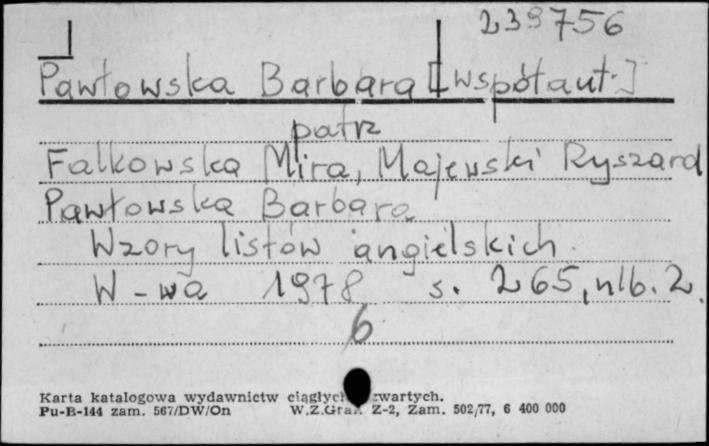 239756
Pawłowska Barbara [współaut.]
patrz
Falkowska Mira, Majewski Ryszard
Pawłowska Barbara
Wzory listów angielskich.
W-wa 1978 s. 265, nlb. 2.
6
Karta katalogowa wydawnictw ciągłych zwartych.
Pu-B-144 zam. 567/DW/On W.Z.Graf. Z-2, Zam. 502/77, 6 400 000